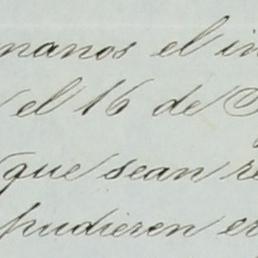 manos el in
el 16 de
que sean re
pudieren en